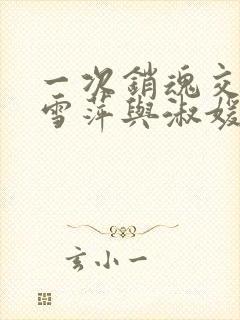 一次銷魂交
雪萍與淑媛
玄小一